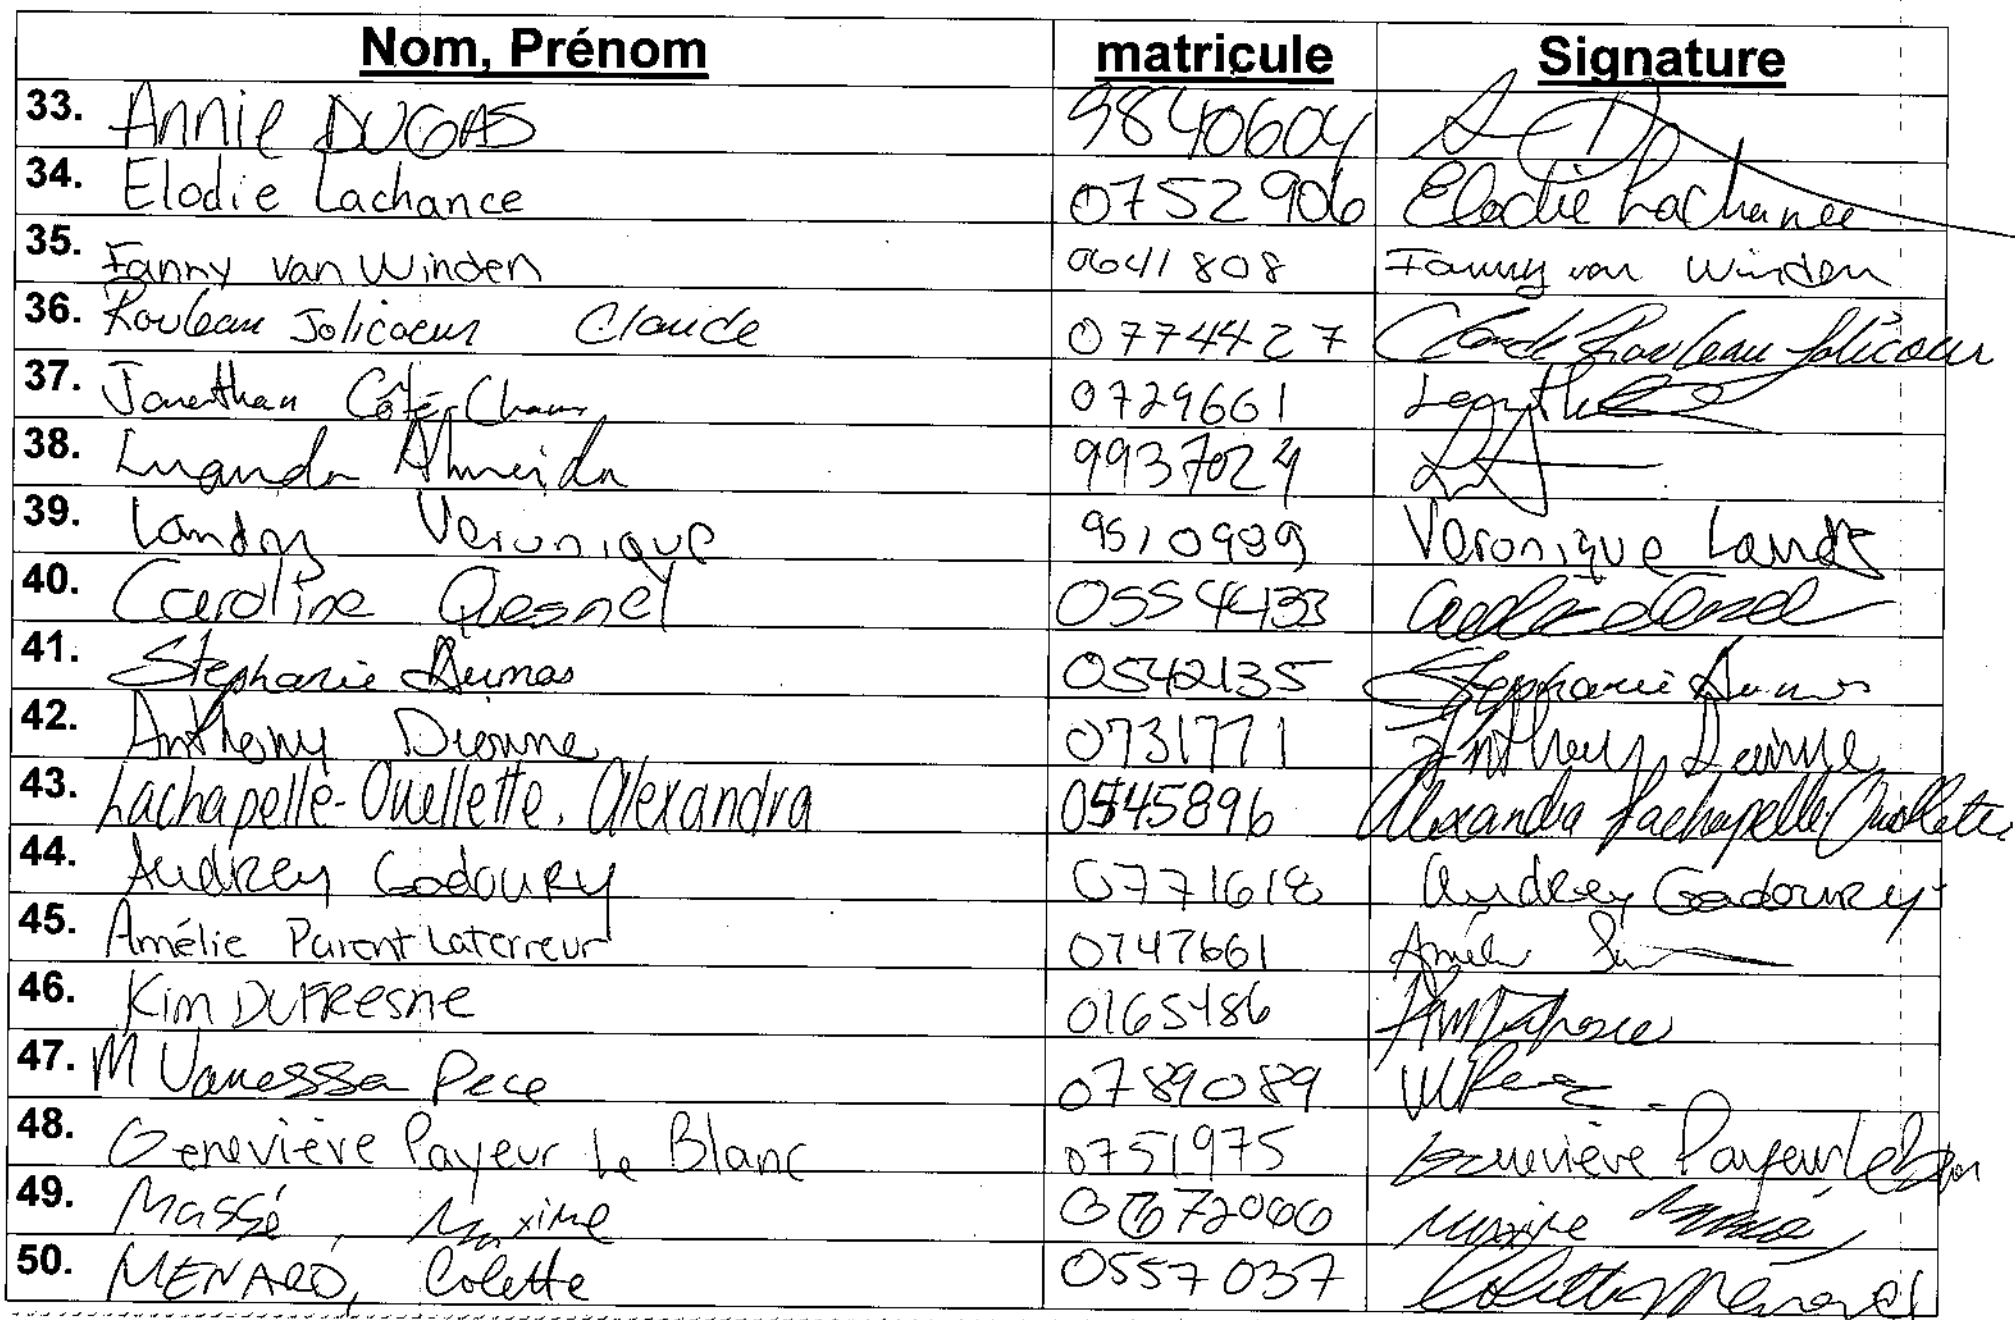 Nom, Prénom matricule Signature
33. Annie DUGAS 9840604
34. Elodie Lachance 0752906 Elodie Lachance
35. Fanny van Winden 0641808 Fanny van Winden
36. Rouleau Jolicoeur Claude 0774427 Claude Rouleau Jolicoeur
37. Jonathan Côté 0729661
38. Luanda Almeida 9937024 LA
39. Landry Veronique 9510989 Veronique Landry
40. Caroline Quesnel 0554433
41. Stephanie Dumas 0542135 Stephanie Dumas
42. Anthony Dionne 0731771 Anthony Dionne
43. Lachapelle-Ouellette, Alexandra 0545896 Alexandra Lachapelle-Ouellette
44. Audrey Gadoury 0771618 Audrey Gadoury
45. Amélie Parent Laterreur 0747661 Amélie
46. Kim DUFResne 0165486 Kim Dufresne
47. M Vanessa Pece 0789089
48. Geneviève Payeur Le Blanc 0751975 Geneviève Payeur Le
49. Massé, Maxime Maxime Massé
50. MENARD, Colette 0557037 Colette Ménard